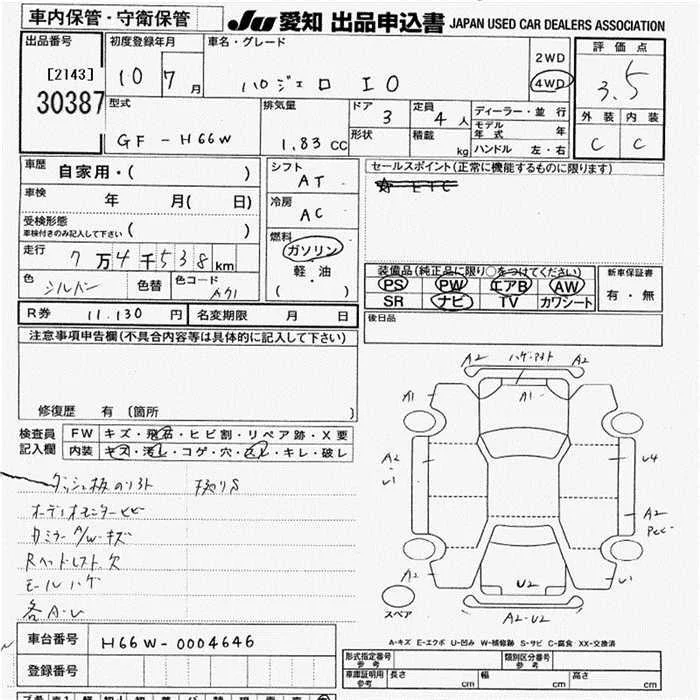 車内保管・守衛保管
JU 愛知 出品申込書 JAPAN USED CAR DEALERS ASSOCIATION
出品番号
[2143]
30387
初度登録年月
10 7 月
車名・グレード
パジェロ IO
2WD
4WD
評価点
3.5
型式
GF - H66W
排気量
1.83 CC
ドア
3
定員
4 人
形状
積載
kg
ディーラー・並 行
モデル年式 年
ハンドル 左・右
外装 内装
C C
車歴 自家用・( )
車検 年 月( 日)
受検形態
車検付きのみ記入して下さい ( )
走行 7 万 4 千 538 km
色 シルバー 色替 色コード A71
シフト
AT
冷房
AC
燃料
ガソリン
軽・油
( )
セールスポイント(正常に機能するものに限ります)
装備品(純正品に限り○をつけてください)
PS PW エアB AW
SR ナビ TV カワシート
新車保証書
有・無
後日品
R券 11.130 円 名変期限 月 日
注意事項申告欄(不具合内容等は具体的に記入して下さい)
修復歴 有 〔箇所 〕
検査員記入欄
FW キズ・飛石・ヒビ割・リペア跡・X要
内装 キズ・汚レ・コゲ・穴・スレ・キレ・破レ
オーディオモニターヒビ
カミラーA/W・キズ
Rヘッドレスト欠
モールハゲ
各A・U
A2 A2
A1 A1
A2
U1
U4
A2
A2 U2 U1
A2-U2
スペア
A-キズ E-エクボ U-凹み W-補修跡 S-サビ C-腐食 XX-交換済
車台番号 H66W-0004646
登録番号
形式指定番号 参考
類別区分番号 参考
車庫証明用 参考
長さ cm 幅 cm 高さ cm